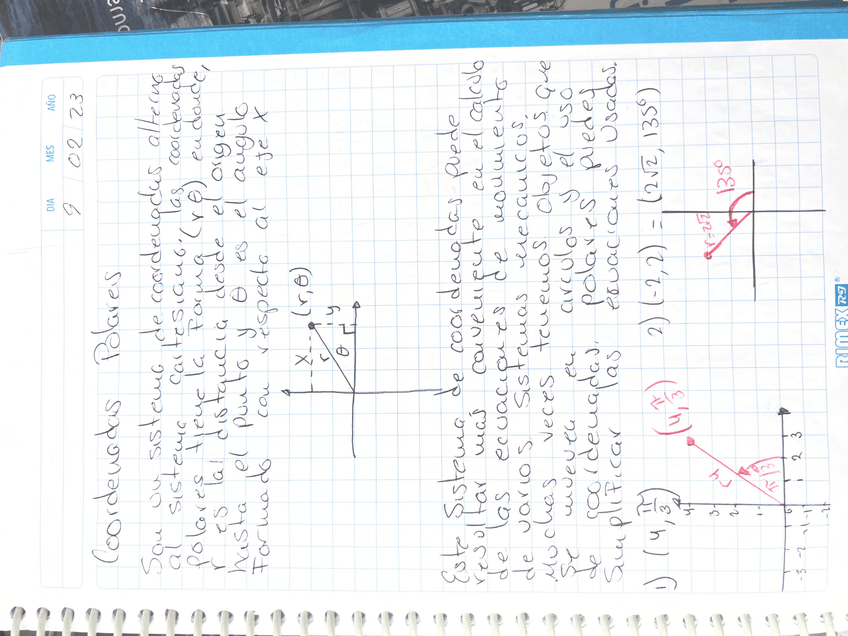 DIA MES AÑO
9 / 02 / 23
Coordenadas Polares
Son un sistema de coordenadas alterno
al sistema cartesiano, las coordenadas
polares tiene la forma (r, θ) en donde,
r es la distancia desde el origen
hasta el punto y θ es el angulo
formado con respecto al eje x
(r, θ)
x
r
y
θ
Este sistema de coordenadas puede
resultar más conveniente en el calculo
de las ecuaciones de movimiento
de varios sistemas mecanicos,
Muchas veces tenemos objetos que
se mueven en circulos y el uso
de coordenadas polares puedes
simplificar las ecuaciones usadas.
1) (4, π/3)
(4, π/3)
4
π/3
4
3
2
1
-3 -2 -1 0 1 2 3
-1
-2
2) (-2, 2) = (2√2, 135°)
r=2√2
135°
RIMEX